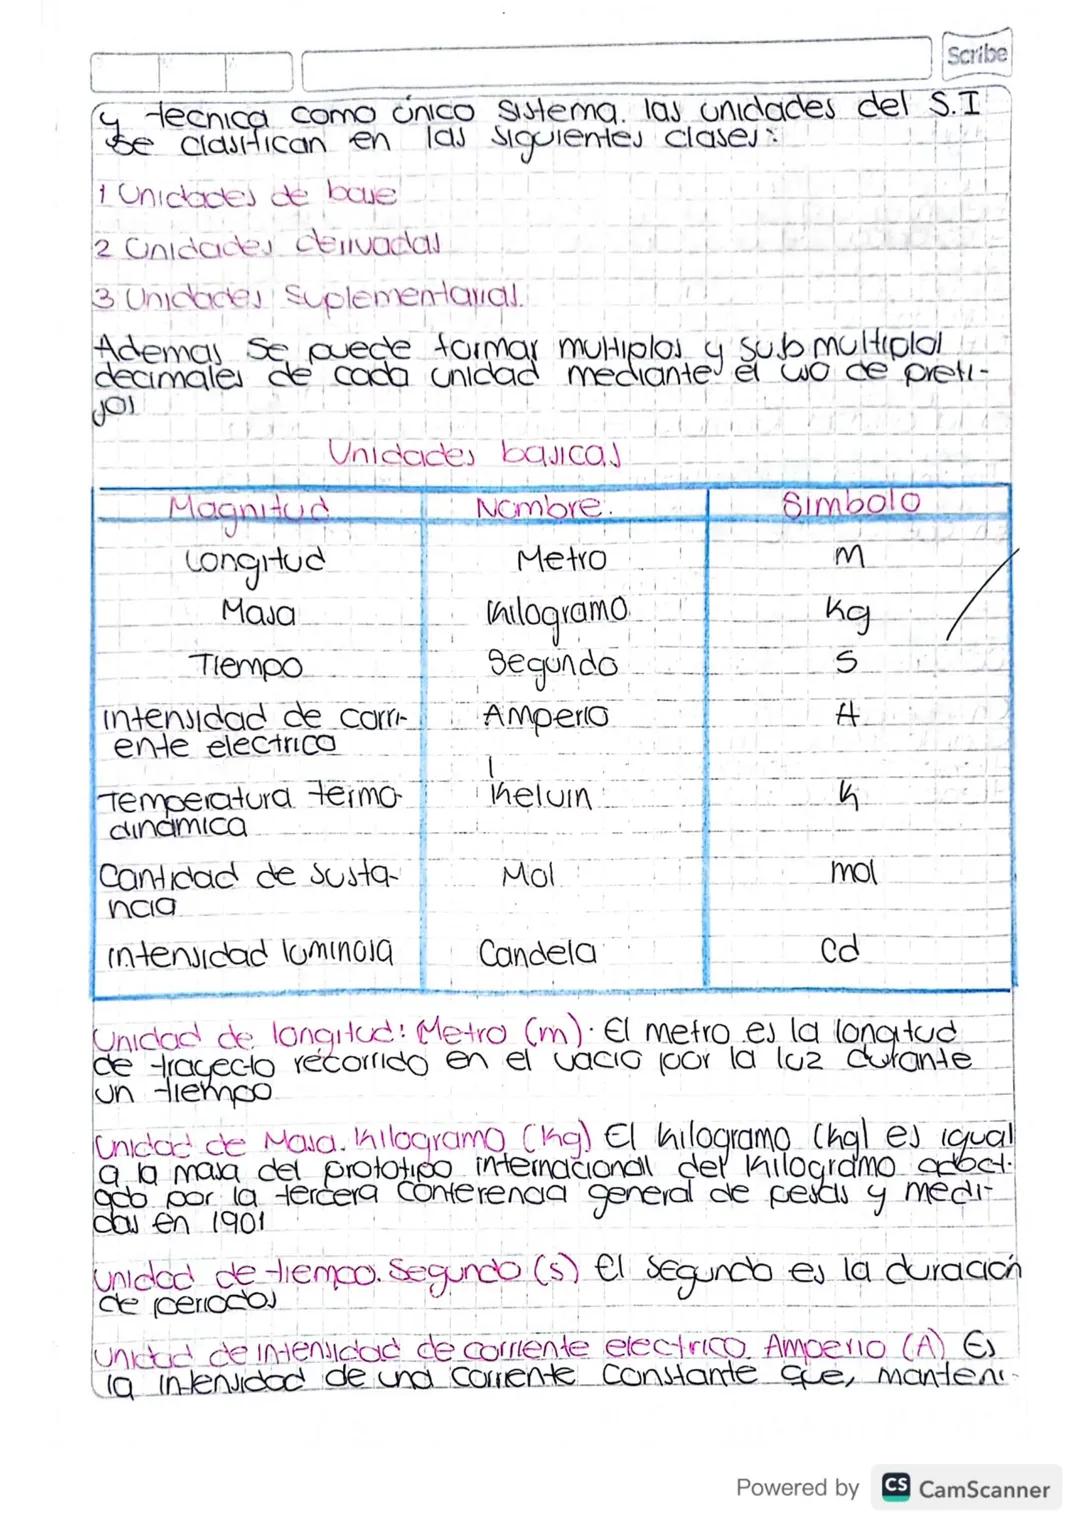 Scribe
y tecnica como único sistema. las unidades del S.I
se clasifican en las siguientes clases:
1 Unidades de base
2 Unidades derivadas
3 Unidades Suplementarias.
Ademas se puede formar multiplos y sub multiplos
decimales de cada unidad mediante el uso de prefi-
jos
Unidades basicas
Magnitud Nombre. Simbolo
Longitud Metro m
Masa Kilogramo Kg
Tiempo Segundo s
intensidad de corri-
ente electrica Amperio A
Temperatura termo-
dinámica Kelvin K
Cantidad de susta-
ncia Mol mol
intensidad luminosa Candela Cd
Unidad de longitud: Metro (m). El metro es la longitud
de trayecto recorrido en el vacio por la luz durante
un tiempo
Unidad de Masa. Kilogramo (Kg) El Kilogramo (kg) es igual
a la masa del prototipo internacional del Kilogramo adoct-
ado por la tercera Conferencia general de pesas y medi-
das en 1901
Unidad de tiempo. Segundo (s) El segundo es la duración
de periodos
Unidad de intensidad de corriente electrico. Amperio (A) Es
la intensidad de una corriente constante que, manteni-
Powered by CS CamScanner